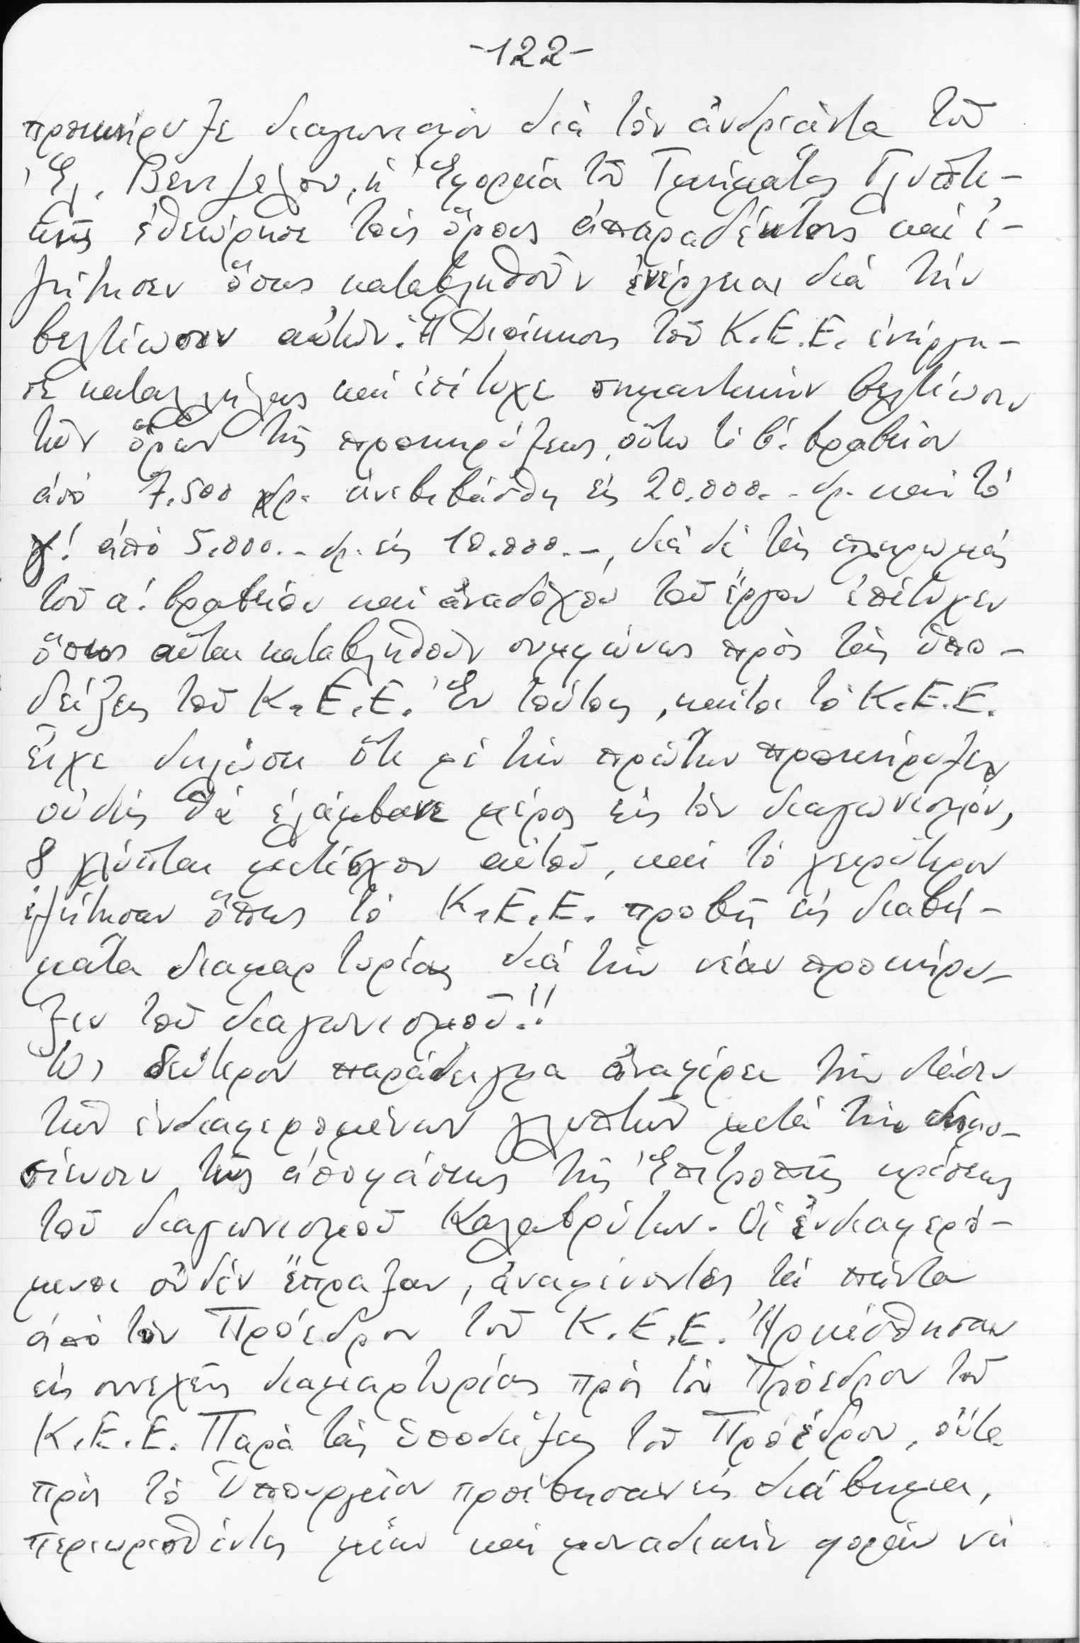 -122-
προεκήρυξε διαγωνισμόν διά τόν ἀνδριάντα τοῦ
Ἐλ. Βενιζέλου, ἡ Ἐφορεία τοῦ Τμήματος Γλυπτι-
κῆς ἐθεώρησε τούς ὅρους ἀπαραδέκτους καί ἐ-
ζήτησεν ὅπως καταβληθοῦν ἐνέργειαι διά τήν
βελτίωσιν αὐτῶν. Ἡ Διοίκησις τοῦ Κ.Ε.Ε. ἐνήργη-
σε καταλλήλως καί ἐπέτυχε σημαντικήν βελτίωσιν
τῶν ὅρων τῆς προκηρύξεως, οὕτω τό β΄. βραβεῖον
ἀπό 7.500 δρ. ἀνεβιβάσθη εἰς 20.000.- δρ. καί τό
γ΄. ἀπό 5.000.- δρ. εἰς 10.000.-, διά δέ τάς πληρωμάς
τοῦ α΄. βραβείου καί ἀναδόχου τοῦ ἔργου ἐπέτυχεν
ὅπως αὗται καταβληθοῦν συμφώνως πρός τάς ὑπο-
δείξεις τοῦ Κ.Ε.Ε. Ἐν τούτοις, καίτοι τό Κ.Ε.Ε.
εἶχε δηλώσει ὅτι μέ τήν πρώτην προκήρυξιν
οὐδείς θά ἐλάμβανε μέρος εἰς τόν διαγωνισμόν,
8 γλύπται μετέσχον αὐτοῦ, καί τό χειρότερον
ἐζήτησαν ὅπως τό Κ.Ε.Ε. προβῇ εἰς διαβή-
ματα διαμαρτυρίας διά τήν νέαν προκήρυ-
ξιν τοῦ διαγωνισμοῦ!!
Ὡς δεύτερον παράδειγμα ἀναφέρει τήν στάσιν
τῶν ἐνδιαφερομένων γλυπτῶν μετά τήν δημο-
σίευσιν τῆς ἀποφάσεως τῆς Ἐπιτροπῆς κρίσεως
τοῦ διαγωνισμοῦ Καλαβρύτων. Οἱ ἐνδιαφερό-
μενοι οὐδέν ἔπραξαν, ἀναμένοντες τά πάντα
ἀπό τόν Πρόεδρον τοῦ Κ.Ε.Ε. Ἠρκέσθησαν
εἰς συνεχεῖς διαμαρτυρίας πρός τόν Πρόεδρον τοῦ
Κ.Ε.Ε. Παρά τάς ὑποδείξεις τοῦ Προέδρου, οὔτε
πρός τό Ὑπουργεῖον προέβησαν εἰς διάβημα,
περιορισθέντες μίαν καί μοναδικήν φοράν νά